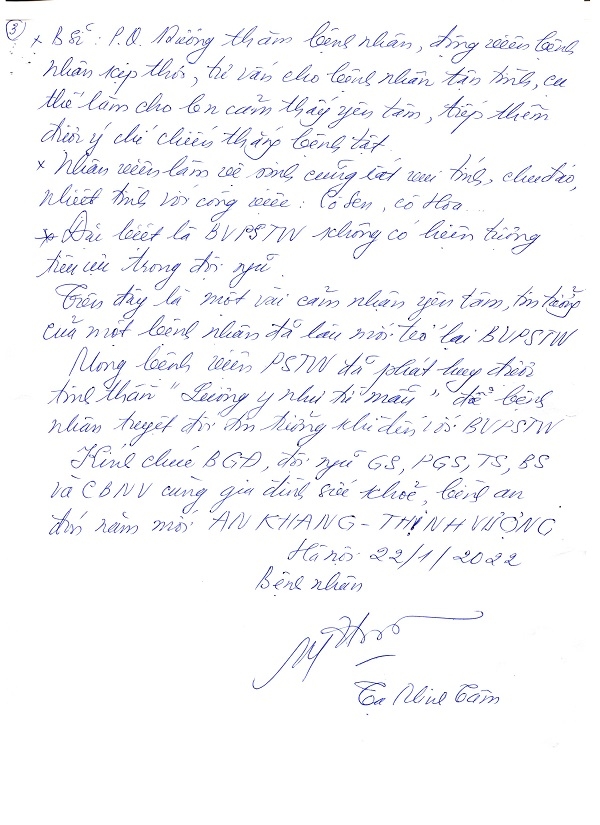 3
x B sĩ: P.Q. Dương thăm bệnh nhân, động viên bệnh
nhân kịp thời, tư vấn cho bệnh nhân tận tình, cụ
thể làm cho bn cảm thấy yên tâm, tiếp thêm
được ý chí chiến thắng bệnh tật.
x Nhân viên làm vệ sinh cũng rất vui tính, chu đáo,
nhiệt tình với công việc: Cô Sen, cô Hoa...
* Đặc biệt là BVPSTW không có hiện tượng
tiêu cực trong đội ngũ.
Trên đây là một vài cảm nhận yên tâm, tin tưởng
của một bệnh nhân đã lâu mới trở lại BVPSTW
Mong bệnh viện PSTW đã phát huy được
tinh thần "Lương y như từ mẫu" để bệnh
nhân tuyệt đối tin tưởng khi đến với BVPSTW
Kính chúc BGĐ, đội ngũ GS, PGS, TS, BS
và CBNV cùng gia đình sức khoẻ, bình an
đón năm mới AN KHANG - THỊNH VƯỢNG
Hà nội 22/1/2022
Bệnh nhân
Tạ Minh Tâm